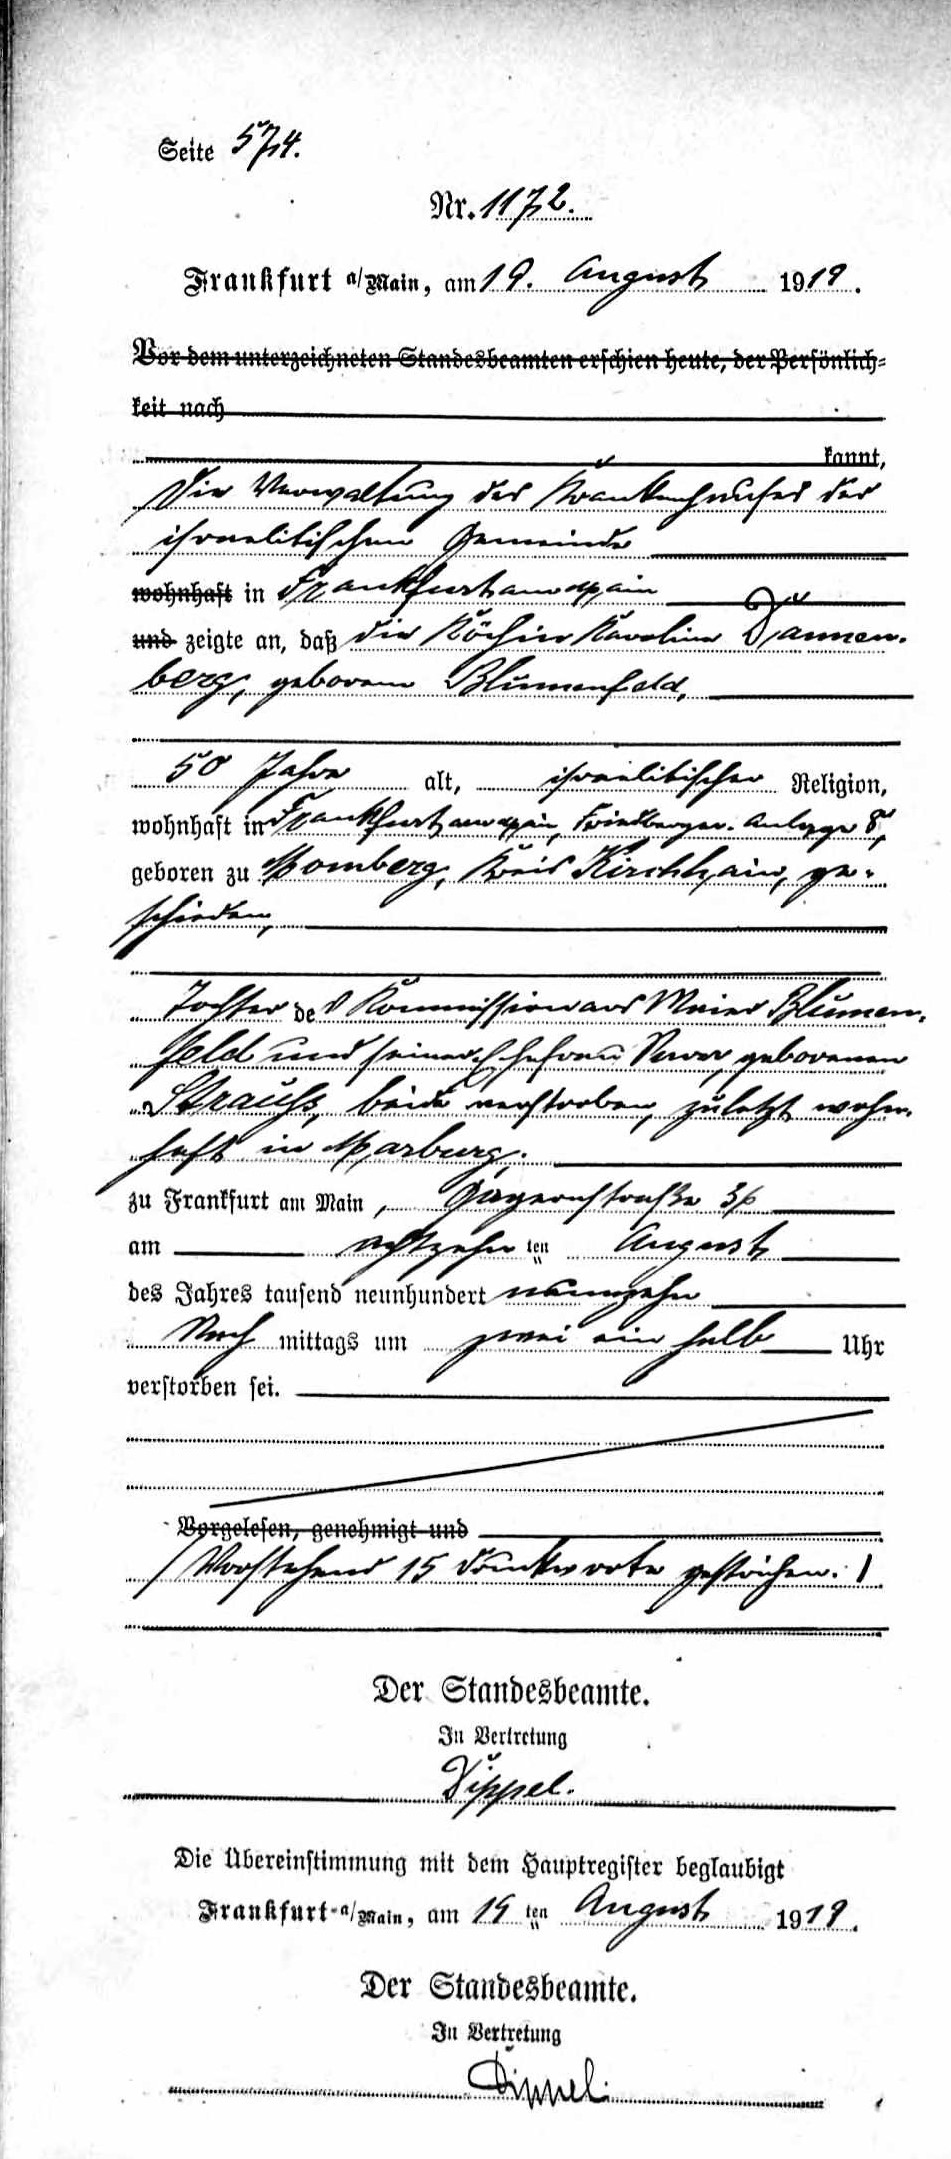 Seite 574.
Nr. 1172.
Frankfurt a/Main, am 19. August 1919.
Vor dem unterzeichneten Standesbeamten erschien heute, der Persönlich-
keit nach
kannt,
Die Verwaltung des Krankenhauses der
israelitischen Gemeinde
wohnhaft in Frankfurt am Main
und zeigte an, daß die Köchin Karoline Dannen-
berg, geborene Blumenfeld,
50 Jahre alt, israelitischer Religion,
wohnhaft in Frankfurt am Main, Friedberger-Anlage 8,
geboren zu Momberg, Kreis Kirchhain, ge-
schieden,
Tochter des Kommissionärs Meier Blumen-
feld und seiner Ehefrau geborenen
Strauß, beide verstorben, zuletzt wohn-
haft in Marburg,
zu Frankfurt am Main, Gagernstraße 36
am achtzehn ten August
des Jahres tausend neunhundert neunzehn
Nach mittags um zwei ein halb Uhr
verstorben sei.
Vorgelesen, genehmigt und
/ Vorstehend 15 Druckworte gestrichen. /
Der Standesbeamte.
In Vertretung
Dippel.
Die Übereinstimmung mit dem Hauptregister beglaubigt
Frankfurt a/Main, am 19 ten August 1919.
Der Standesbeamte.
In Vertretung
Dippel.